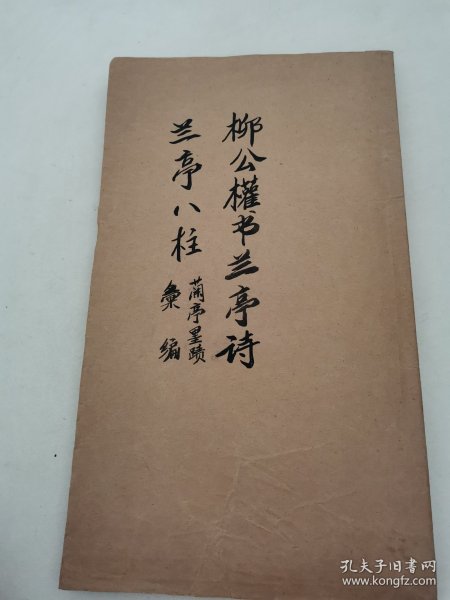 柳公權书兰亭诗
兰亭八柱
蘭亭墨蹟
彙编
孔夫子旧书网
www.kongfz.com